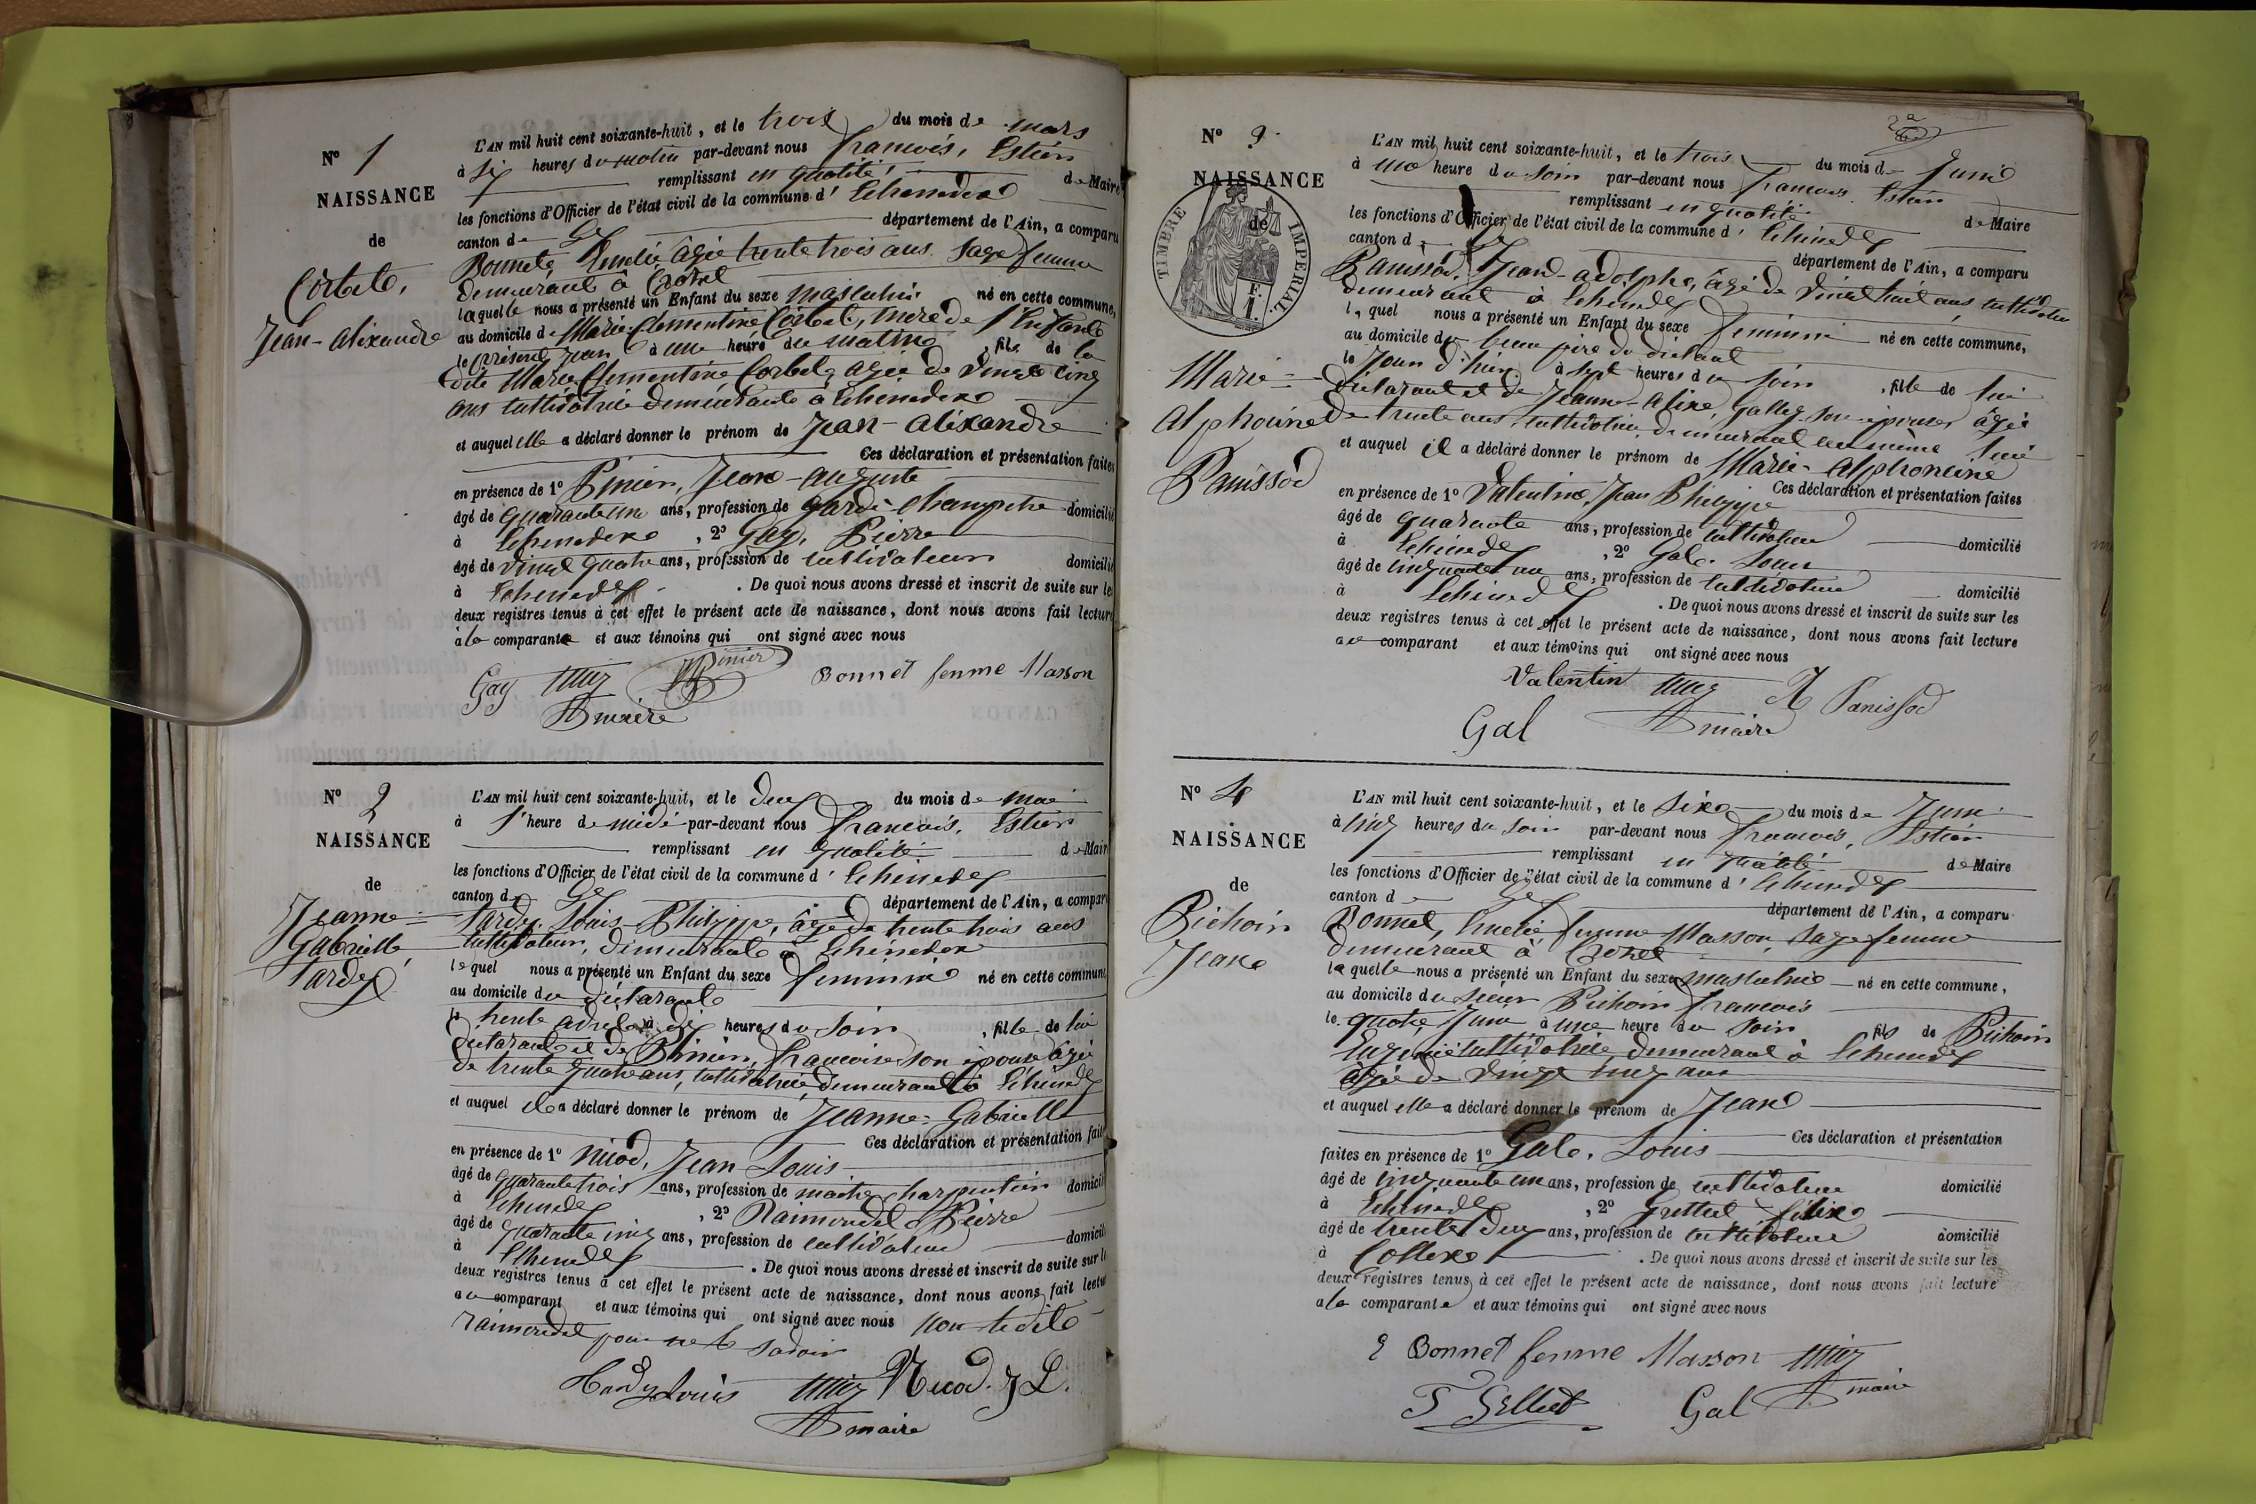 N° 1
NAISSANCE
de
Corbet,
Jean-alixandre
L'AN mil huit cent soixante-huit, et le trois du mois de mars
à six heures du matin par-devant nous francois, Estier
remplissant en qualité de Maire
les fonctions d'Officier de l'état civil de la commune d' Echenevex
canton de Gex département de l'Ain, a comparu
Bonnet, Emelie âgée trente trois ans Sage femme
demeurant à Crozet
laquelle nous a présenté un Enfant du sexe masculin né en cette commune,
au domicile de Marie Clementine Corbet, mere de l'Enfant
le présent jour à une heure du matin, fils de la
dite Marie Clementine Corbet, agée de vingt cinq
ans cultivatrice demeurant à Echenevex
et auquel elle a déclaré donner le prénom de Jean-alixandre
Ces déclaration et présentation faites
en présence de 1° Pinier, Jean-auguste
âgé de quarante un ans, profession de garde-champetre domicilié
à Echenevex, 2° Gay, Pierre
âgé de vingt quatre ans, profession de cultivateur domicilié
à Echenevex. De quoi nous avons dressé et inscrit de suite sur les
deux registres tenus à cet effet le présent acte de naissance, dont nous avons fait lecture
à la comparante et aux témoins qui ont signé avec nous
Gay Pinier Bonnet femme Masson
maire
N° 2
NAISSANCE
de
Jeanne-
Gabrielle
Tardy
L'AN mil huit cent soixante-huit, et le deux du mois de mai
à 1 heure de midi par-devant nous francois, Estier
remplissant en qualité de Maire
les fonctions d'Officier de l'état civil de la commune d' Echenevex
canton de Gex département de l'Ain, a comparu
Tardy, Louis-Philippe, âgé de trente trois ans
cultivateur, demeurant à Echenevex
lequel nous a présenté un Enfant du sexe feminin né en cette commune
au domicile du déclarant
le trente avril à dix heures du soir, fille de lui
déclarant et de Pinier, francoise son épouse âgée
de trente quatre ans, cultivatrice demeurant à Echenevex
et auquel il a déclaré donner le prénom de Jeanne-Gabrielle
Ces déclaration et présentation fait
en présence de 1° Nicod, Jean Louis
âgé de quarante trois ans, profession de maitre charpentier domicil
à Echenevex, 2° Raimondet Pierre
âgé de quarante cinq ans, profession de cultivateur domicil
à Echenevex. De quoi nous avons dressé et inscrit de suite sur l
deux registres tenus à cet effet le présent acte de naissance, dont nous avons fait lectu
au comparant et aux témoins qui ont signé avec nous non ledit
raimondet pour ne le savoir
Tardy Louis Nicod. J L.
maire
N° 3
NAISSANCE
de
TIMBRE IMPERIAL.
Marie-
alphonsine
Panissod
L'AN mil huit cent soixante-huit, et le trois du mois de Juin
à une heure du soir par-devant nous francois Estier
remplissant en qualité de Maire
les fonctions d'Officier de l'état civil de la commune d' Echenevex
canton de Gex département de l'Ain, a comparu
Panissod, Jean-adolphe, âgé de vingt huit ans cultivateur
demeurant à Echenevex
lequel nous a présenté un Enfant du sexe feminin né en cette commune,
au domicile du beau pere du déclarant
le Jour d'hier à sept heures du soir, fille de lui
déclarant et de Jeanne-alixe, Gallay son épouse, âgée
de trente ans cultivatrice, demeurant au même lieu
et auquel il a déclaré donner le prénom de Marie-alphonsine
Ces déclaration et présentation faites
en présence de 1° Valentin, Jean Philippe
âgé de quarante ans, profession de cultivateur domicilié
à Echenevex, 2° Gal. Louis
âgé de cinquante un ans, profession de cultivateur domicilié
à Echenevex. De quoi nous avons dressé et inscrit de suite sur les
deux registres tenus à cet effet le présent acte de naissance, dont nous avons fait lecture
au comparant et aux témoins qui ont signé avec nous
Valentin A Panissod
Gal maire
N° 4
NAISSANCE
de
Pichoin
Jean
L'AN mil huit cent soixante-huit, et le six du mois de Juin
à cinq heures du soir par-devant nous francois, Estier
remplissant en qualité de Maire
les fonctions d'Officier de l'état civil de la commune d' Echenevex
canton de Gex département de l'Ain, a comparu
Bonnet, Emelie femme Masson, sage femme
demeurant à Crozet
laquelle nous a présenté un Enfant du sexe masculin né en cette commune,
au domicile du sieur Pichoin francois
le quatre Juin à une heure du soir fils de Pichoin
Eugenie cultivatrice, demeurant à Echenevex
agée de vingt cinq ans
et auquel elle a déclaré donner le prénom de Jean
Ces déclaration et présentation
faites en présence de 1° Gal, Louis
âgé de cinquante un ans, profession de cultivateur domicilié
à Echenevex, 2° Felix
âgé de trente deux ans, profession de cultivateur domicilié
à Collex. De quoi nous avons dressé et inscrit de suite sur les
deux registres tenus à cet effet le présent acte de naissance, dont nous avons fait lecture
à la comparante et aux témoins qui ont signé avec nous
E Bonnet femme Masson
Gal maire